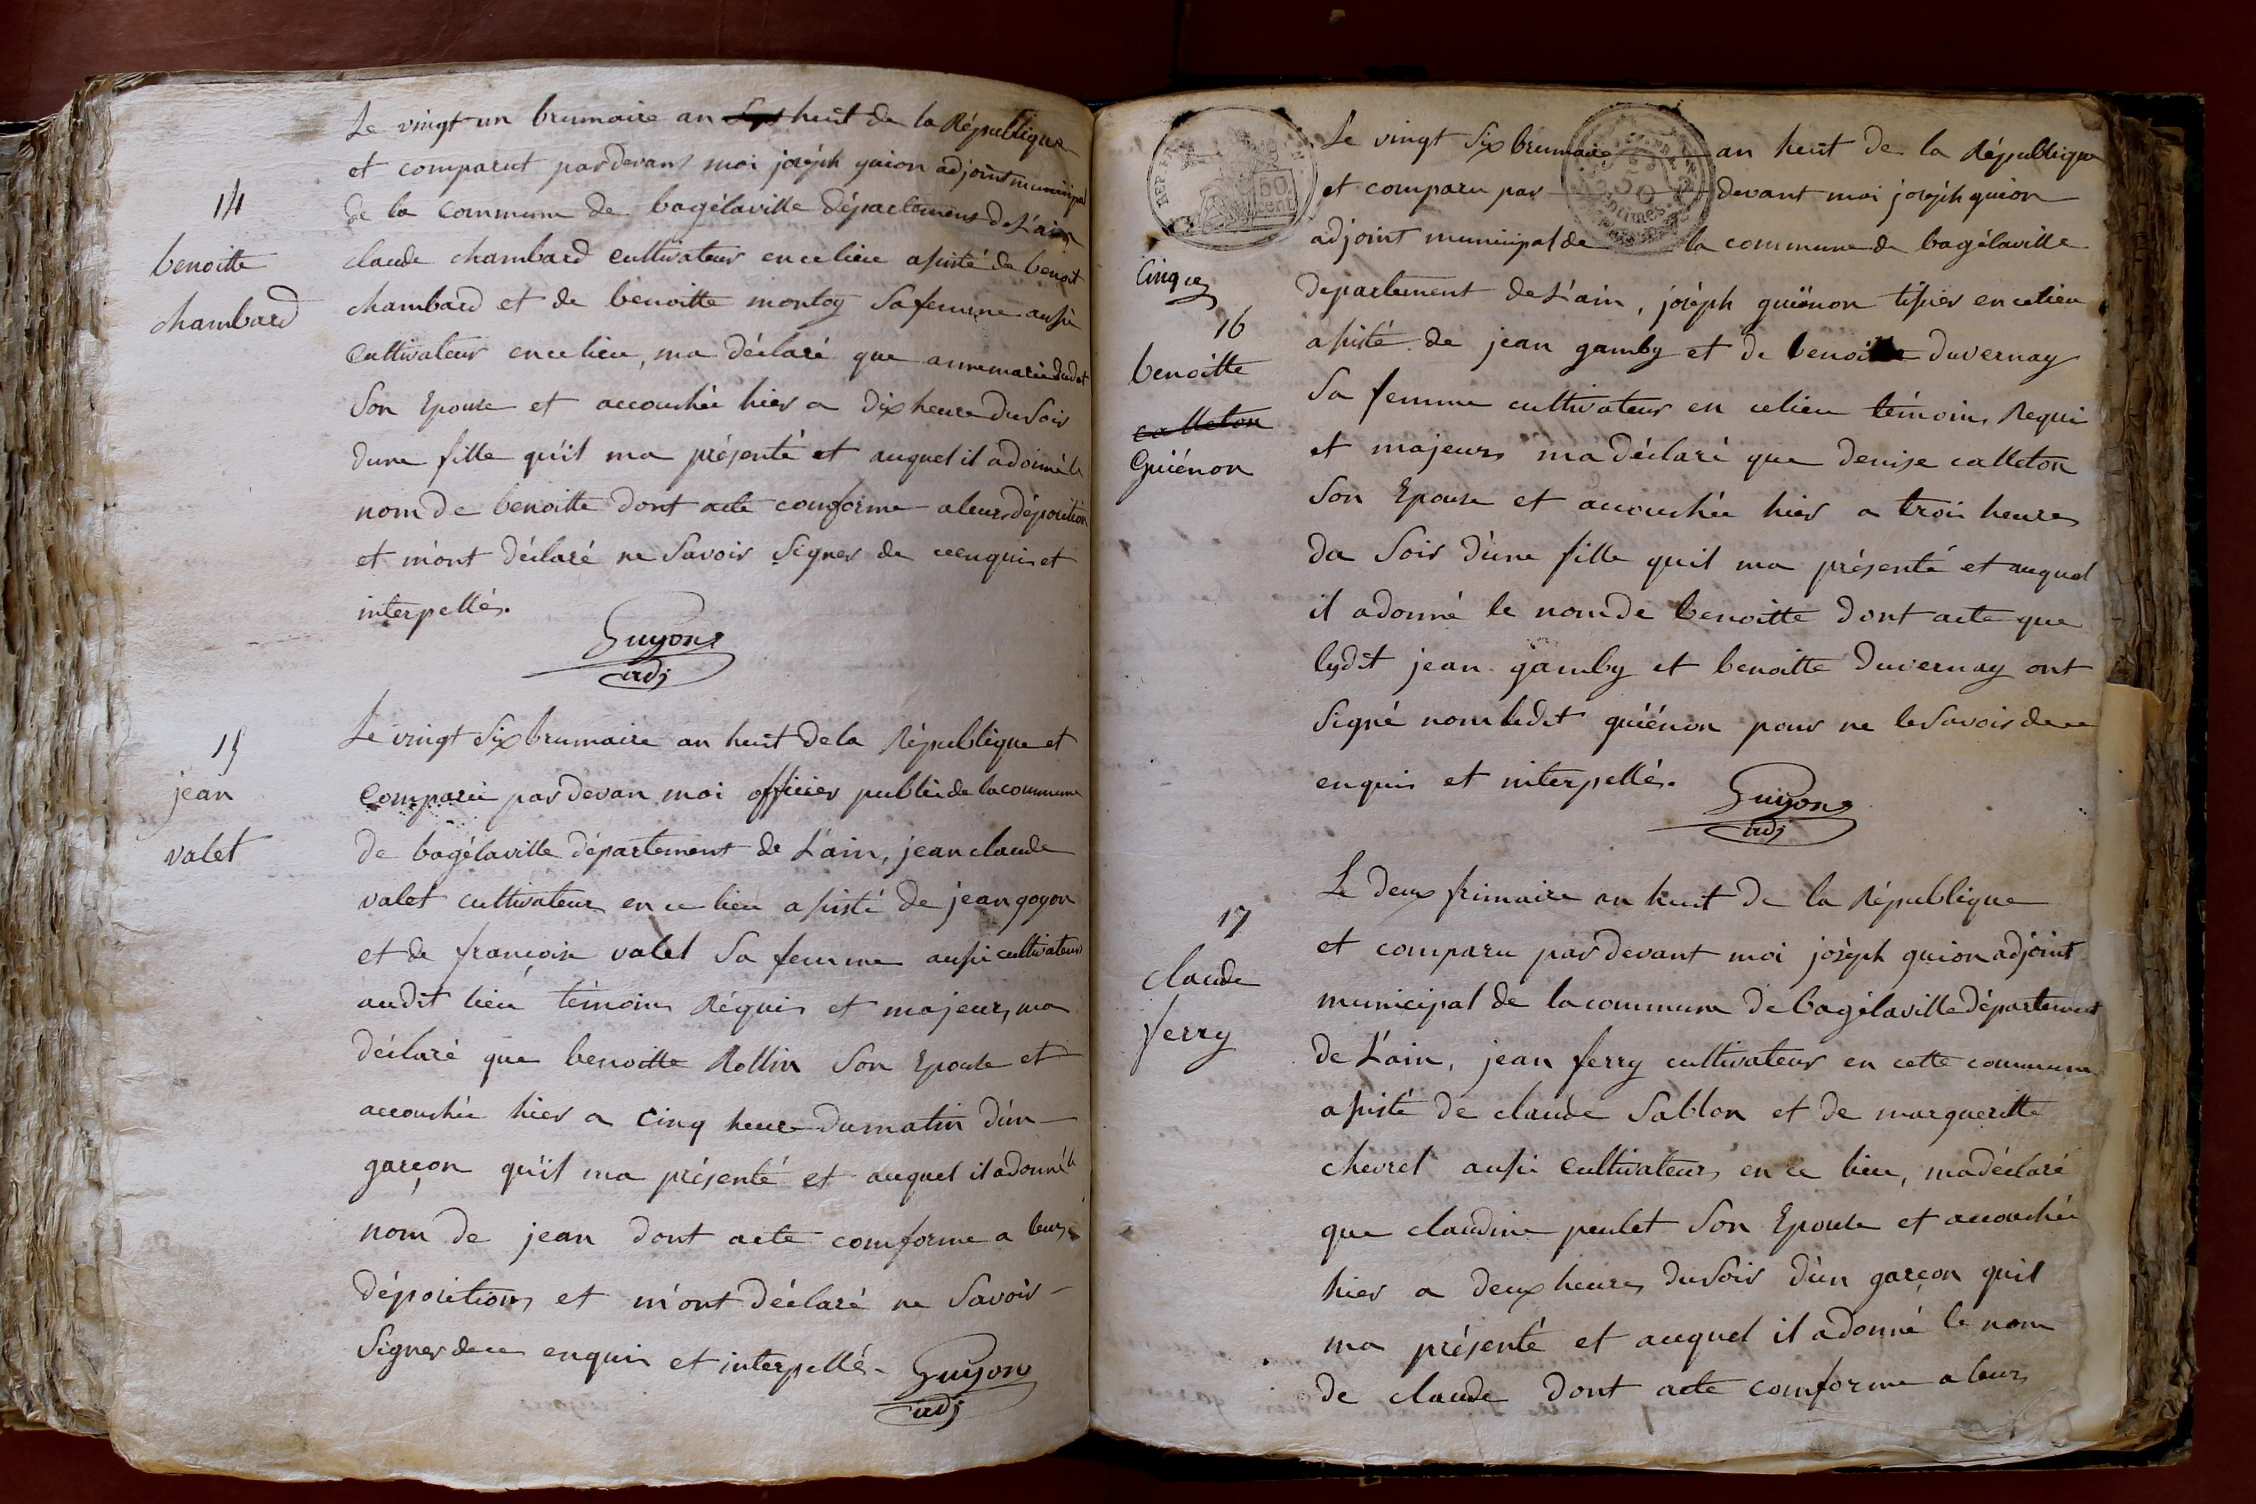 Le vingt un brumaire an huit de la République
et comparut pardevant moi joséph guion adjoint municipal
de la commune de bagélaville département de L'ain
14
benoitte
chambard
claude chambard cultivateur en ce lieu asisté de benoit
chambard et de benoitte montoy sa femme ausi
cultivateur en ce lieu, ma déclaré que anne marie
son Epouse et accouchée hier a dix heure du soir
dune fille qu'il ma présenté et auquel il a donné le
nom de benoitte dont acte comforme a leurs déposition
et m'ont déclaré ne savoir signer de ce enquis et
interpellés.
Guyon
adj
15
jean
valet
Le vingt six brumaire an huit de la République et
comparu par devan moi officier public de la commune
de bagélaville département de L'ain, jean claude
valet cultivateur en ce lieu asisté de jean goyon
et de françoise valet sa femme ausi cultivateur
audit lieu témoins Réquis et majeurs, ma
déclaré que benoitte Rollin son Epouse et
accouchée hier a cinq heure du matin d'un
garçon qu'il ma présenté et auquel il a donné le
nom de jean dont acte comforme a leurs
dépositions et m'ont déclaré ne savoir
signer de ce enquis et interpellé.
Guyon
adj
50
cent.
50
centimes
Le vingt six brumaire an huit de la République
et comparu par devant moi joséph guion
adjoint municipal de la commune de bagélaville
cinque
16
benoitte
calleton
Guiénon
département de L'ain, joséph guiénon tisier en ce lieu
asisté de jean gamby et de benoitte duvernay
sa femme cultivateur en ce lieu témoins Requi
et majeurs ma déclaré que denise calleton
son Epouse et accouchée hier a trois heures
du soir d'une fille qu'il ma présenté et auquel
il a donné le nom de benoitte dont acte que
lydit jean gamby et benoitte duvernay ont
signé nom ledit guiénon pour ne le savoir de ce
enquis et interpellés.
Guyon
adj
17
claude
ferry
Le deux frimaire an huit de la République
et comparu par devant moi joséph guion adjoint
municipal de la commune de bagélaville département
de L'ain, jean ferry cultivateur en cette commune
asisté de claude Sablon et de margueritte
chevrel ausi cultivateurs en ce lieu, ma déclaré
que claudine peulet son Epouse et accouchée
hier a deux heures du soir d'un garçon qu'il
ma présenté et auquel il a donné le nom
de claude dont acte comforme a leurs